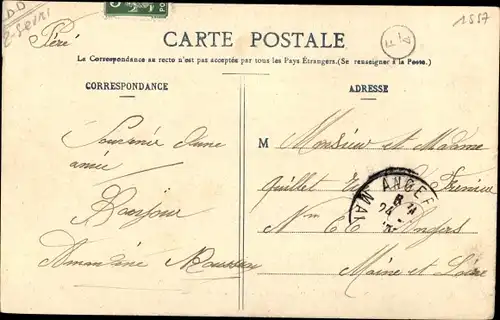 1557
Péré
CARTE POSTALE
La Correspondance au recto n'est pas acceptée par tous les Pays Étrangers. (Se renseigner à la Poste.)
CORRESPONDANCE
ADRESSE
Souvenir d'une
amie
Bonjour
Amandine
M Monsieur et Madame
Quillet
Angers
Maine et Loire
ANGER
24
MAI